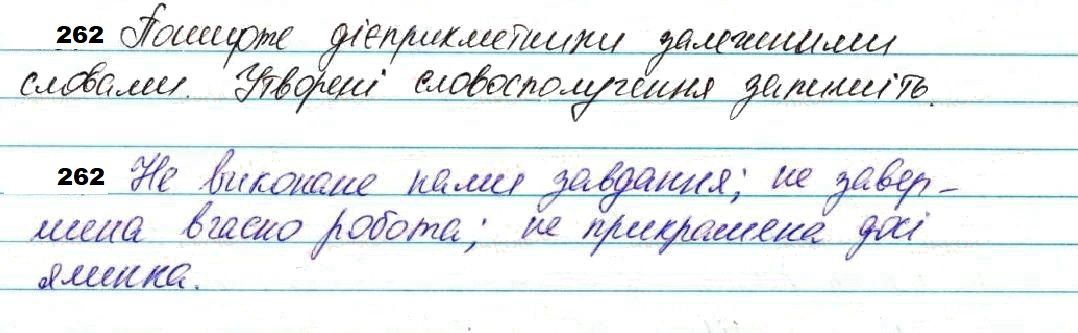 262 Поширте дієприкметники залежними
словами. Утворені словосполучення запишіть.
262 Не виконане нами завдання; не завер-
шена вчасно робота; не прикрашена досі
ялинка.